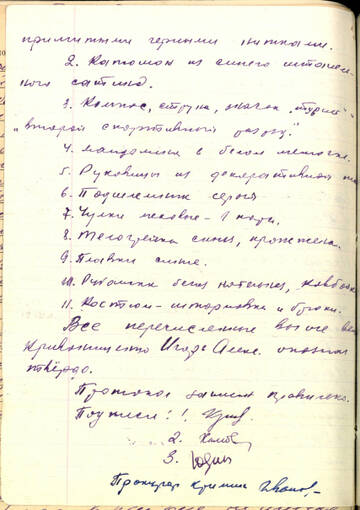 прошитыми черными нитками.
2. Капюшон из синего штапель-
ного сатина.
3. Компас, струна, значек "турист" и
"второй спортивный разряд".
4. мандолина в белом мешочке.
5. Рукавицы из декоративной
6. Подшлемник серый
7. Чулки меховые - 1 пара.
8. Телогрейка синяя, прожжена.
9. Плавки синие.
10. Рубашка белая нательная, ковбойка
11. Костюм - штормовка и брюки.
Все перечисленные выше
Кривонищенко Игорь Алекс. опознал
твёрдо.
Протокол записан правильно.
Подписи: 1.
2.
3. Юдин
Прокурор кримин Иванов